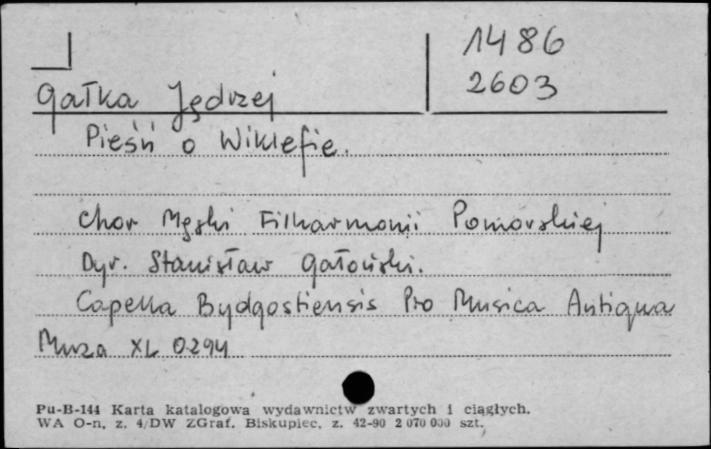 1486
2603
Gałka Jędrzej
Pieśń o Wiklefie.
Chór Męski Filharmonii Pomorskiej
Dyr. Stanisław Gałoński.
Capella Bydgostiensis Pro Musica Antiqua
Muza XL 0294
Pu-B-144 Karta katalogowa wydawnictw zwartych i ciągłych.
WA O-n, z. 4/DW ZGraf. Biskupiec, z. 42-90 2 070 000 szt.